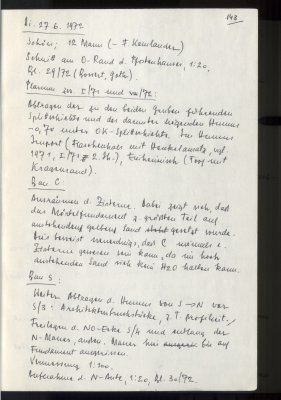 143
Di. 27.6.1972
Schön, 12 Mann (- 7 Kawlander)
Schnitt am O-Rand d. 1:20,
Bl. 29/72 (Bossert, Gothe).
Planum zw. I/71 und VIII/72:
Abtragen der zu den beiden Gruben führenden
Splittschichte und der darunter liegenden Humus
-0,70 unter OK-Splittschichte. Im Humus
Import (Flaschenhals mit Henkelansatz, vgl.
1971, I/71 2. Sh.), Einheimisch (Topf mit
Kragenrand).
Bau C:
Ausräumen d. Zisterne. Dabei zeigt sich, daß
das Mörtelfundament z. größten Teil auf
anstehend gelben Sand gesetzt wurde.
Dies beweist neuerdings, daß C niemals e.
Zisterne gewesen sein kann, da im hoch
anstehenden Sand sich kein H2O halten kann.
Bau S:
Weiter Abtragen d. Humus von S → N vor
S/3: Architekturbruchstücke, z.T. profiliert.
Freilegen d. NO-Ecke S/4 und entlang der
N-Mauer, anden. Mauer bis auf
Fundament ausgerissen.
Vermessung 1:100.
Aufnahme d. N-Ante, 1:20, Bl. 30/72.